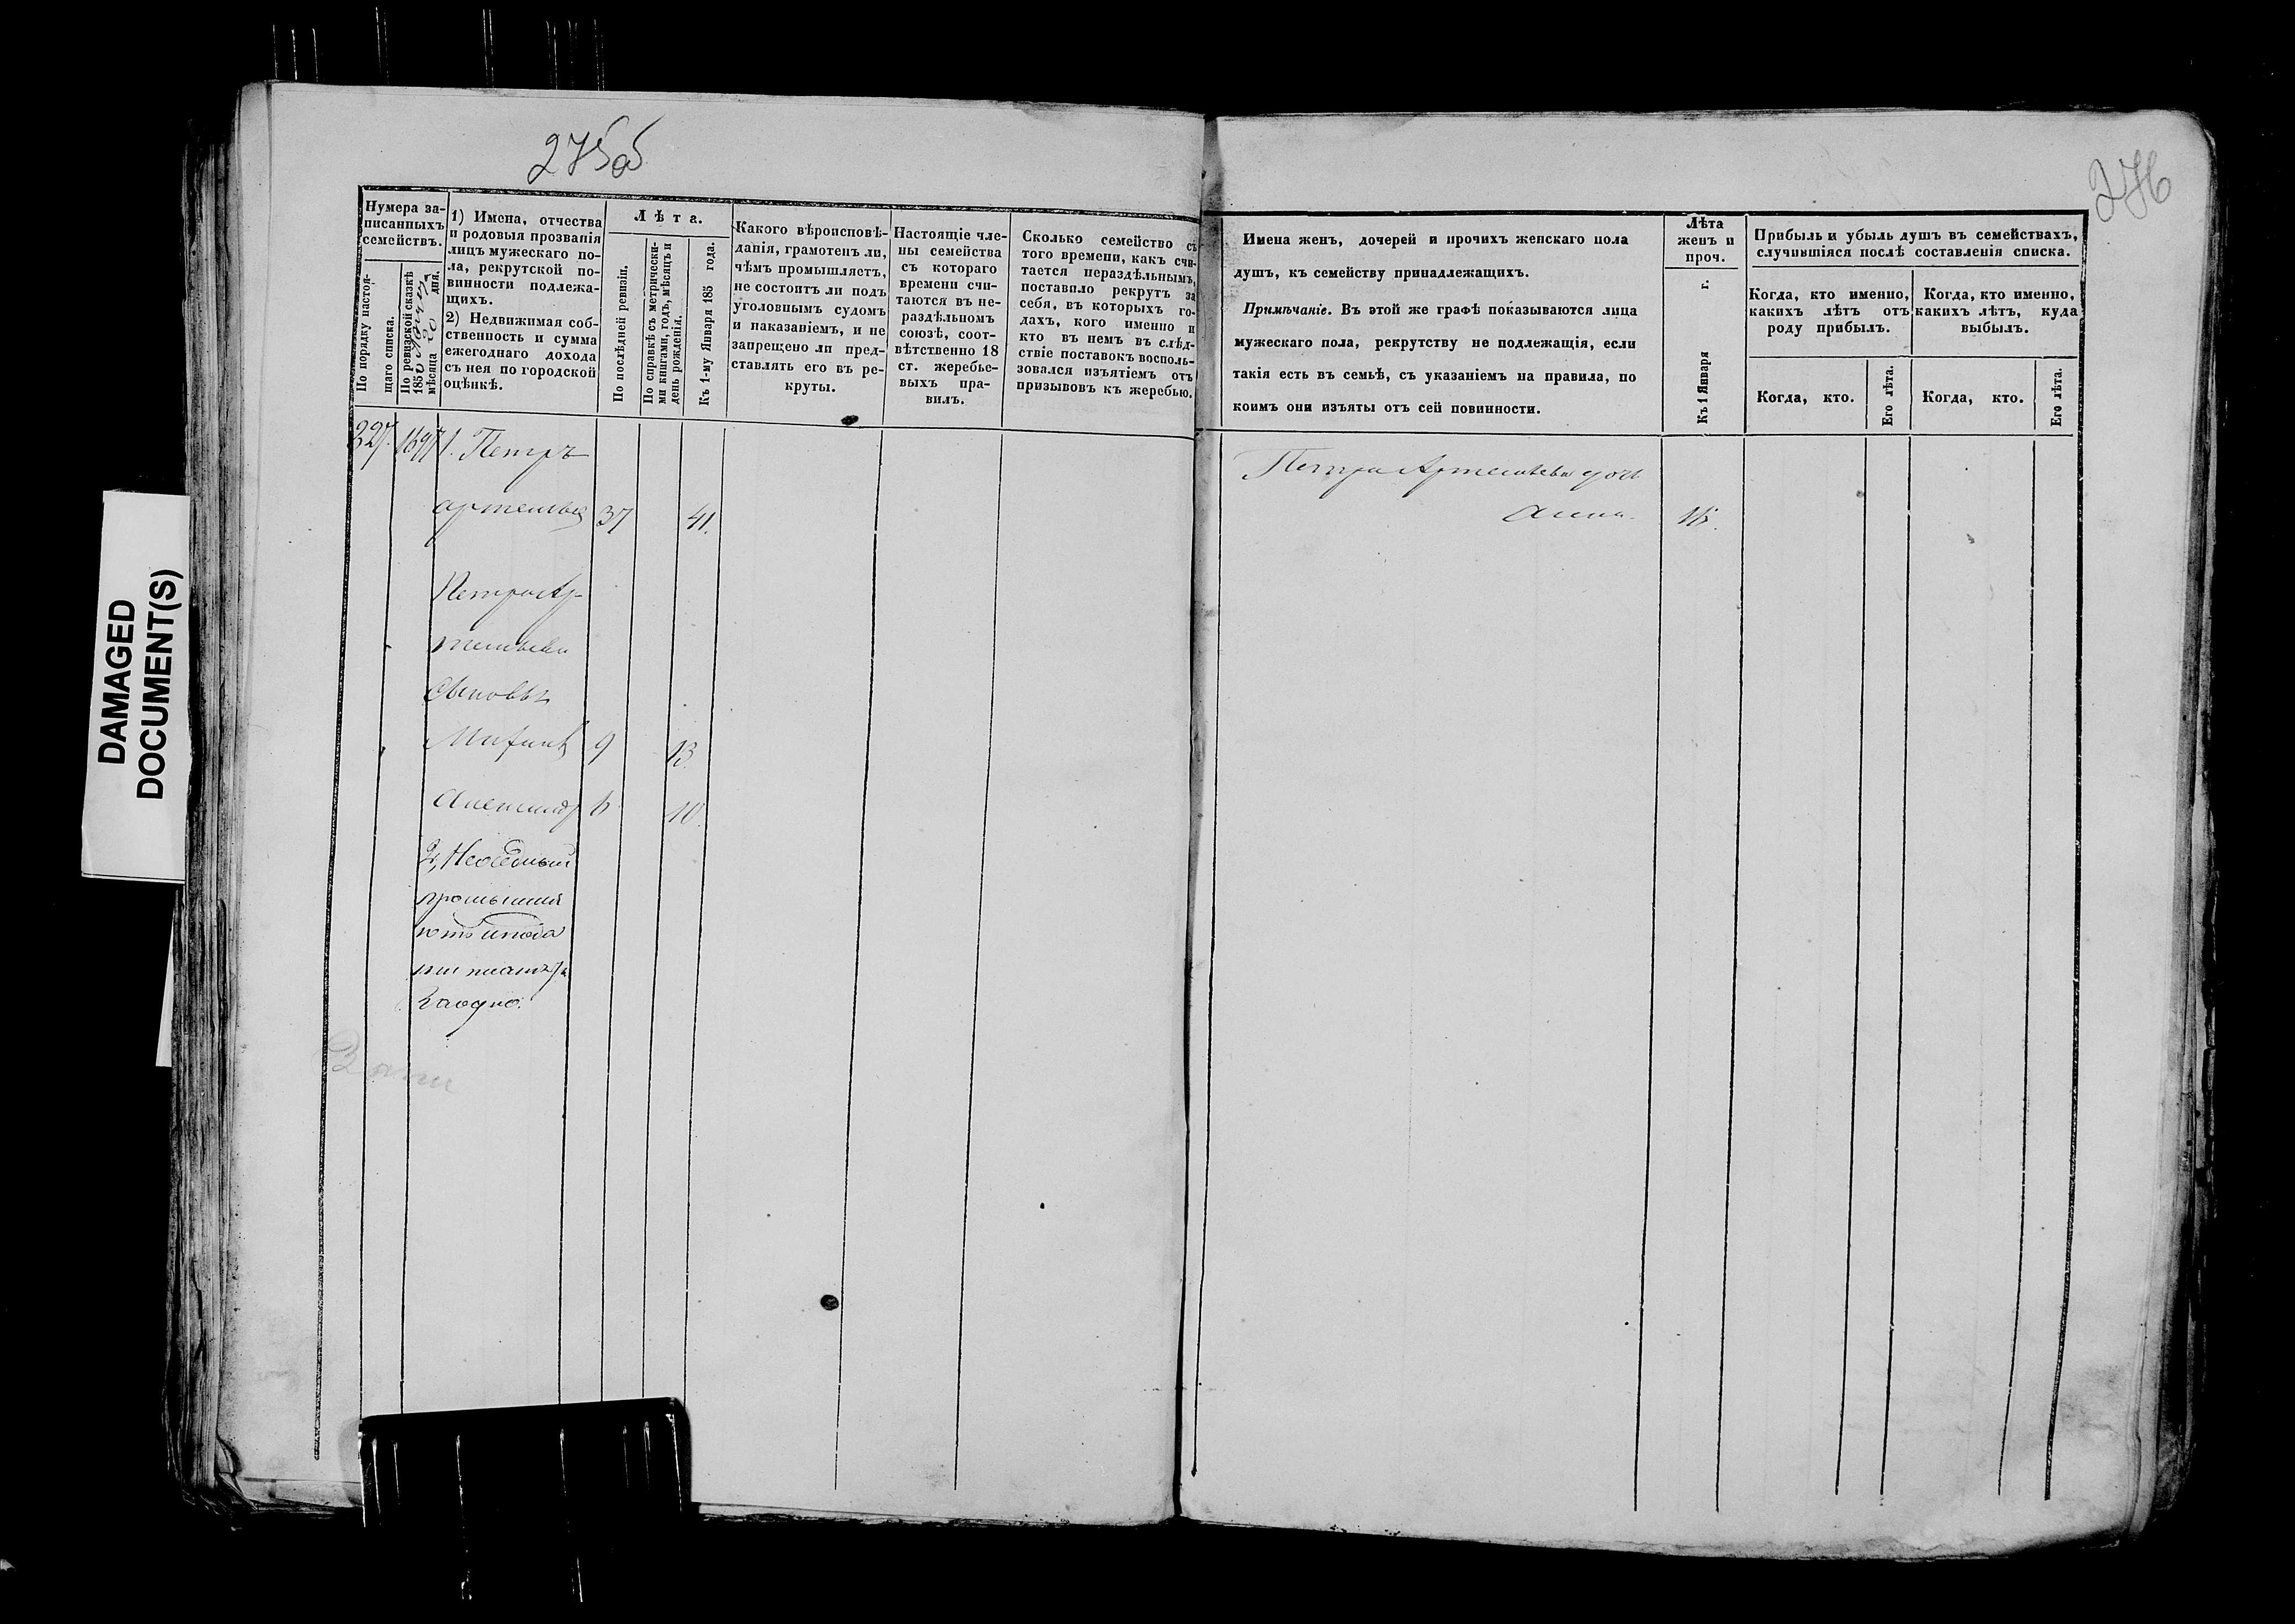 275об
276
DAMAGED
DOCUMENT(S)
Нумера за-
писанныхъ
семействъ.
По порядку настоя-
щаго списка.
По ревизской сказкѣ
1850
мѣсяца 20 дня.
1) Имена, отчества
и родовыя прозванія
лицъ мужескаго по-
ла, рекрутской по-
винности подлежа-
щихъ.
2) Недвижимая соб-
ственность и сумма
ежегоднаго дохода
съ нея по городской
оцѣнкѣ.
Лѣта.
По послѣдней ревизіи.
По справкѣ съ метрически-
ми книгами, годъ, мѣсяцъ и
день рожденія.
Къ 1-му Января 185 года.
Какого вѣроисповѣ-
данія, грамотенъ ли,
чѣмъ промышляетъ,
не состоитъ ли подъ
уголовнымъ судомъ
и наказаніемъ, и не
запрещено ли пред-
ставлять его въ ре-
круты.
Настоящіе чле-
ны семейства
съ котораго
времени счи-
таются въ не-
раздѣльномъ
союзѣ, соот-
вѣтственно 18
ст. жеребье-
выхъ пра-
вилъ.
Сколько семейство съ
того времени, какъ счи-
тается нераздѣльнымъ,
поставило рекрутъ за
себя, въ которыхъ го-
дахъ, кого именно и
кто въ немъ въ слѣд-
ствіе поставокъ восполь-
зовался изъятіемъ отъ
призывовъ къ жеребью.
Имена женъ, дочерей и прочихъ женскаго пола
душъ, къ семейству принадлежащихъ.
Примѣчаніе. Въ этой же графѣ показываются лица
мужескаго пола, рекрутству не подлежащія, если
такія есть въ семьѣ, съ указаніемъ на правила, по
коимъ они изъяты отъ сей повинности.
Лѣта
женъ и
проч.
Къ 1 Января г.
Прибыль и убыль душъ въ семействахъ,
случившіяся послѣ составленія списка.
Когда, кто именно,
какихъ лѣтъ отъ
роду прибылъ.
Когда, кто именно,
какихъ лѣтъ, куда
выбылъ.
Когда, кто.
Его лѣта.
Когда, кто.
Его лѣта.
327. 1. Петръ
Артемьев 37 41.
Петра Ар-
темьева
Сыновья
9 13
Александр 6 10.
2,
Петра Артемьева дочь
Анна. 15.